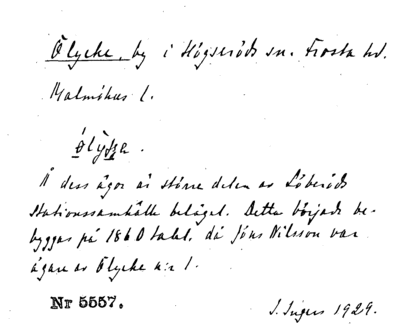 Ölycke, by i Högseröds sn. Frosta hd.
Malmöhus l.
Å dess ägor är större delen av Löberöds
stationssamhälle beläget. Detta började be-
byggas på 1860 talet, då Jöns Nilsson var
ägare av Ölycke n:r 1.
Nr 5557.
I. Ingers 1929.